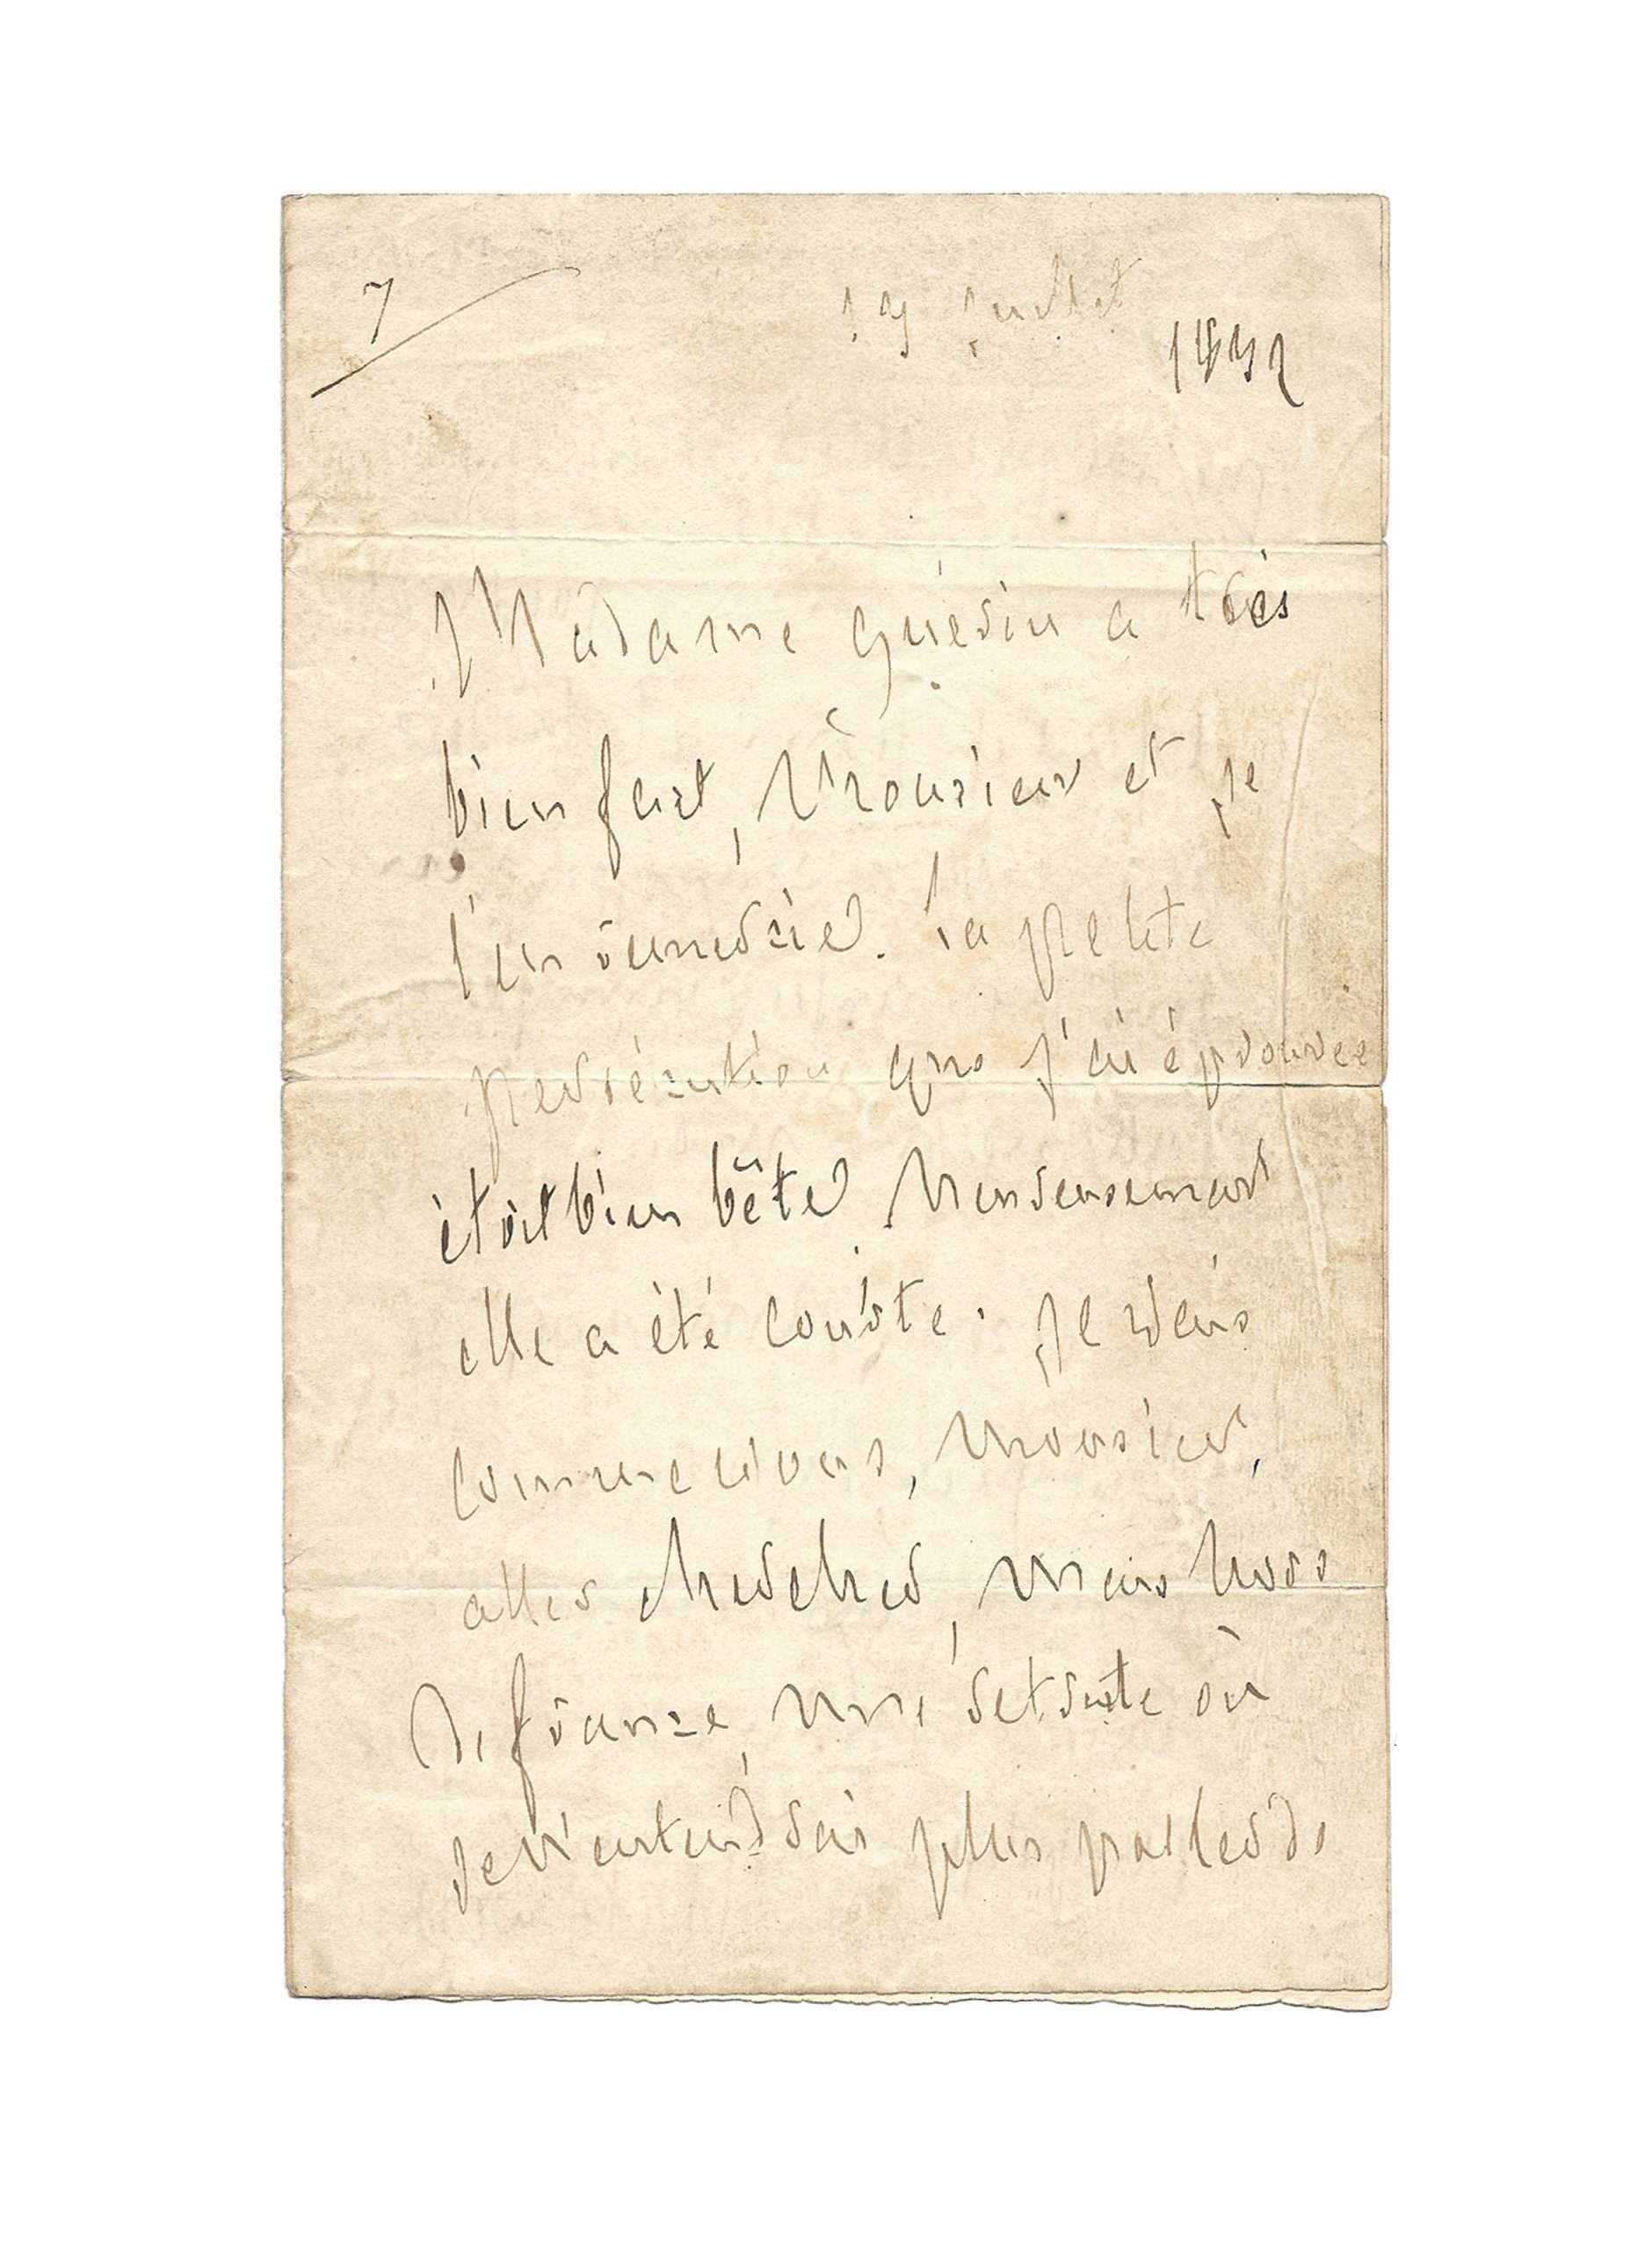 7
19 juillet
1832
Madame Guérin a très
bien fait, Monsieur et je
l'en remercie. La petite
persécution que j'ai éprouvée
étoit bien bête. Heureusement
elle a été courte. Je vais
comme vous, Monsieur,
aller chercher, mais hors
de france, une retraite où
je n'entendrai plus parler de